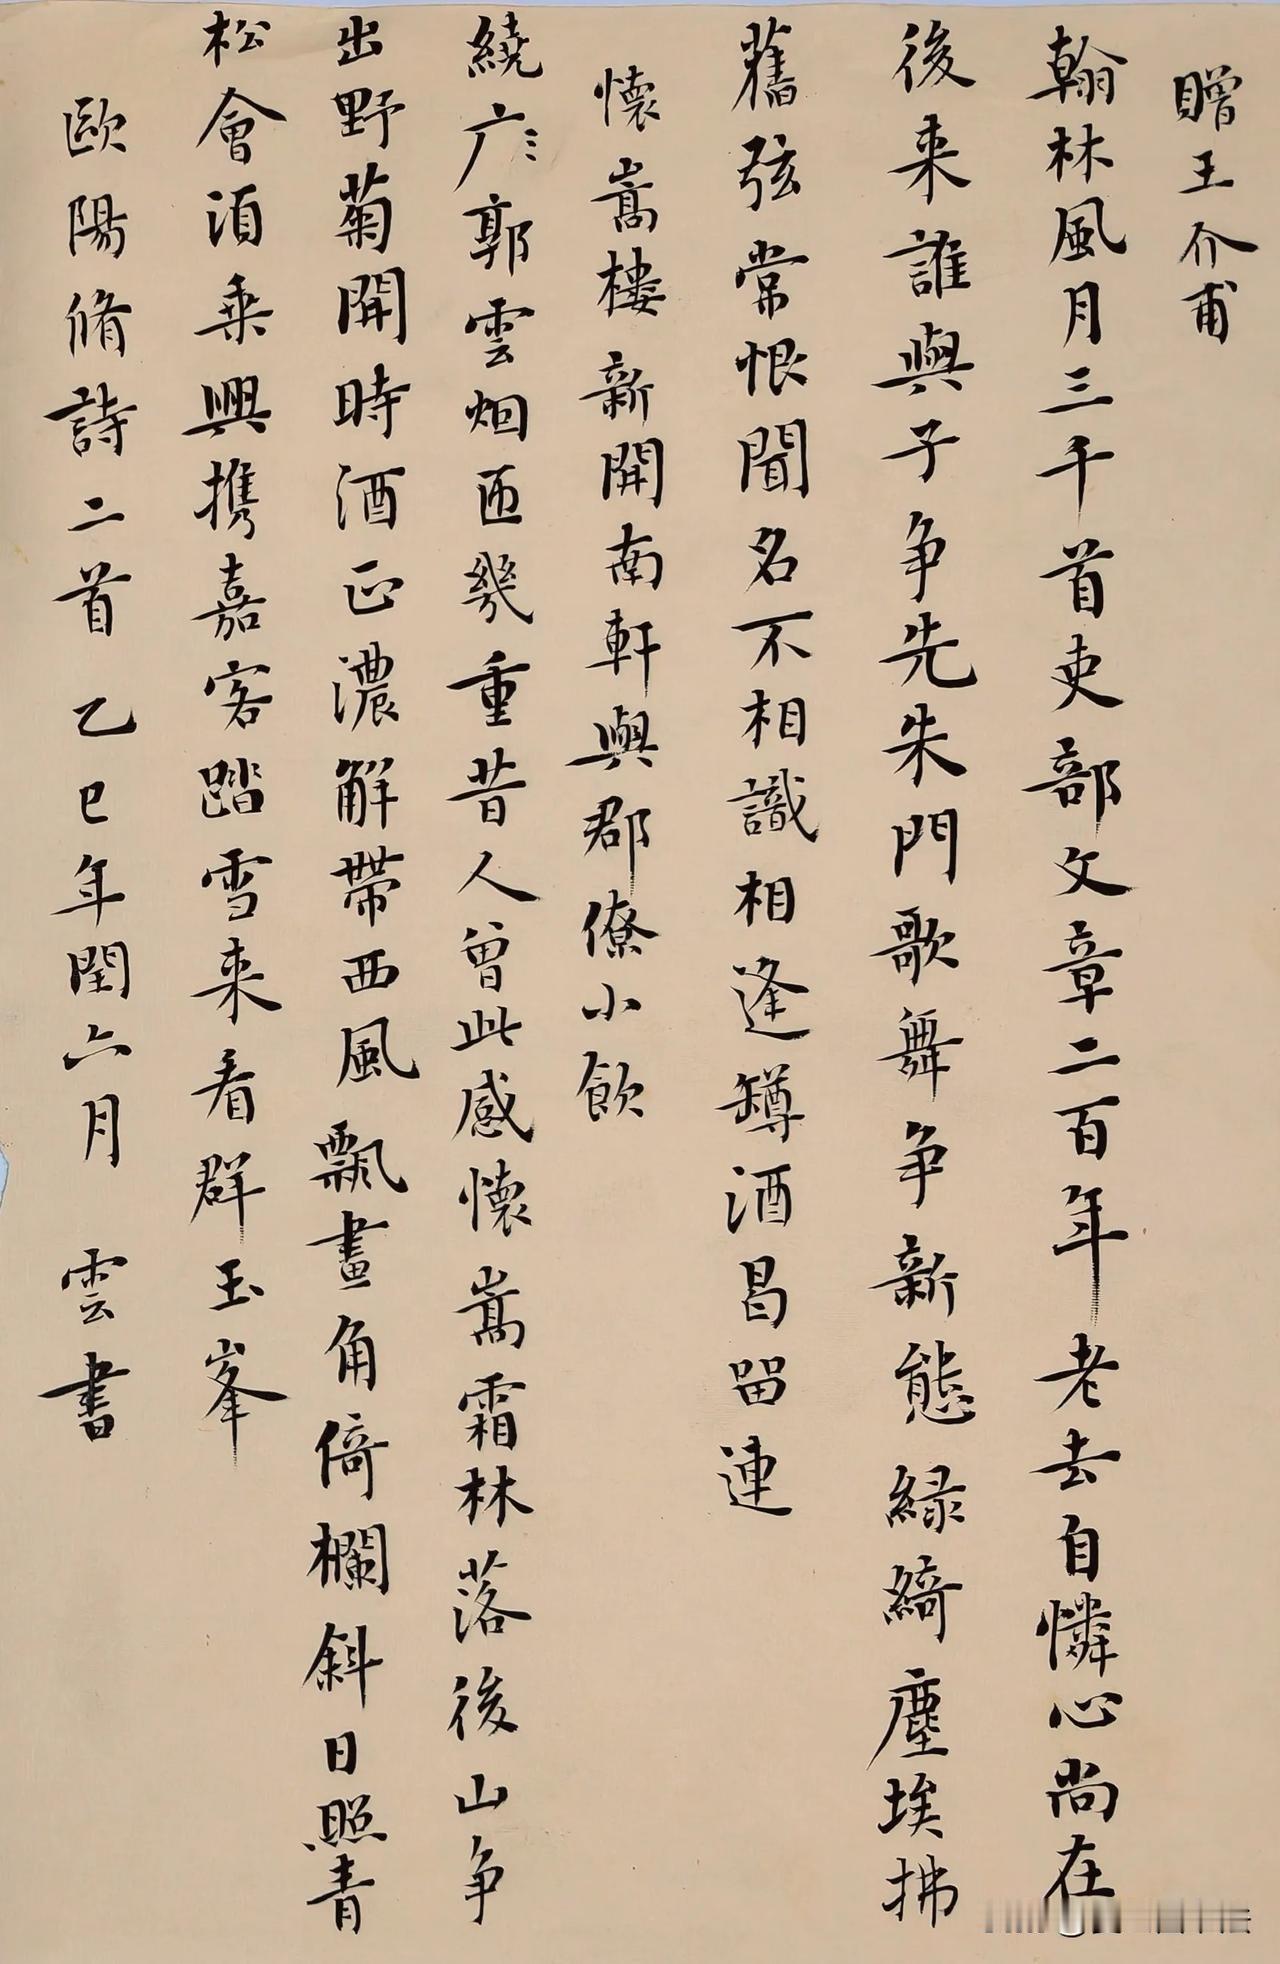 贈王介甫
翰林風月三千首吏部文章二百年老去自憐心尚在
後来誰與子争先朱門歌舞争新態緑綺塵埃拂
舊弦常恨聞名不相識相逢罇酒昌留連
懷嵩樓新開南軒與郡僚小飲
繞广郭雲烟匝幾重昔人曾此感懷嵩霜林落後山争
出野菊開時酒正濃解帶西風飄畫角倚欄斜日照青
松會須乘興攜嘉客踏雪来看群玉峯
歐陽脩詩二首 乙巳年閏六月 雲書